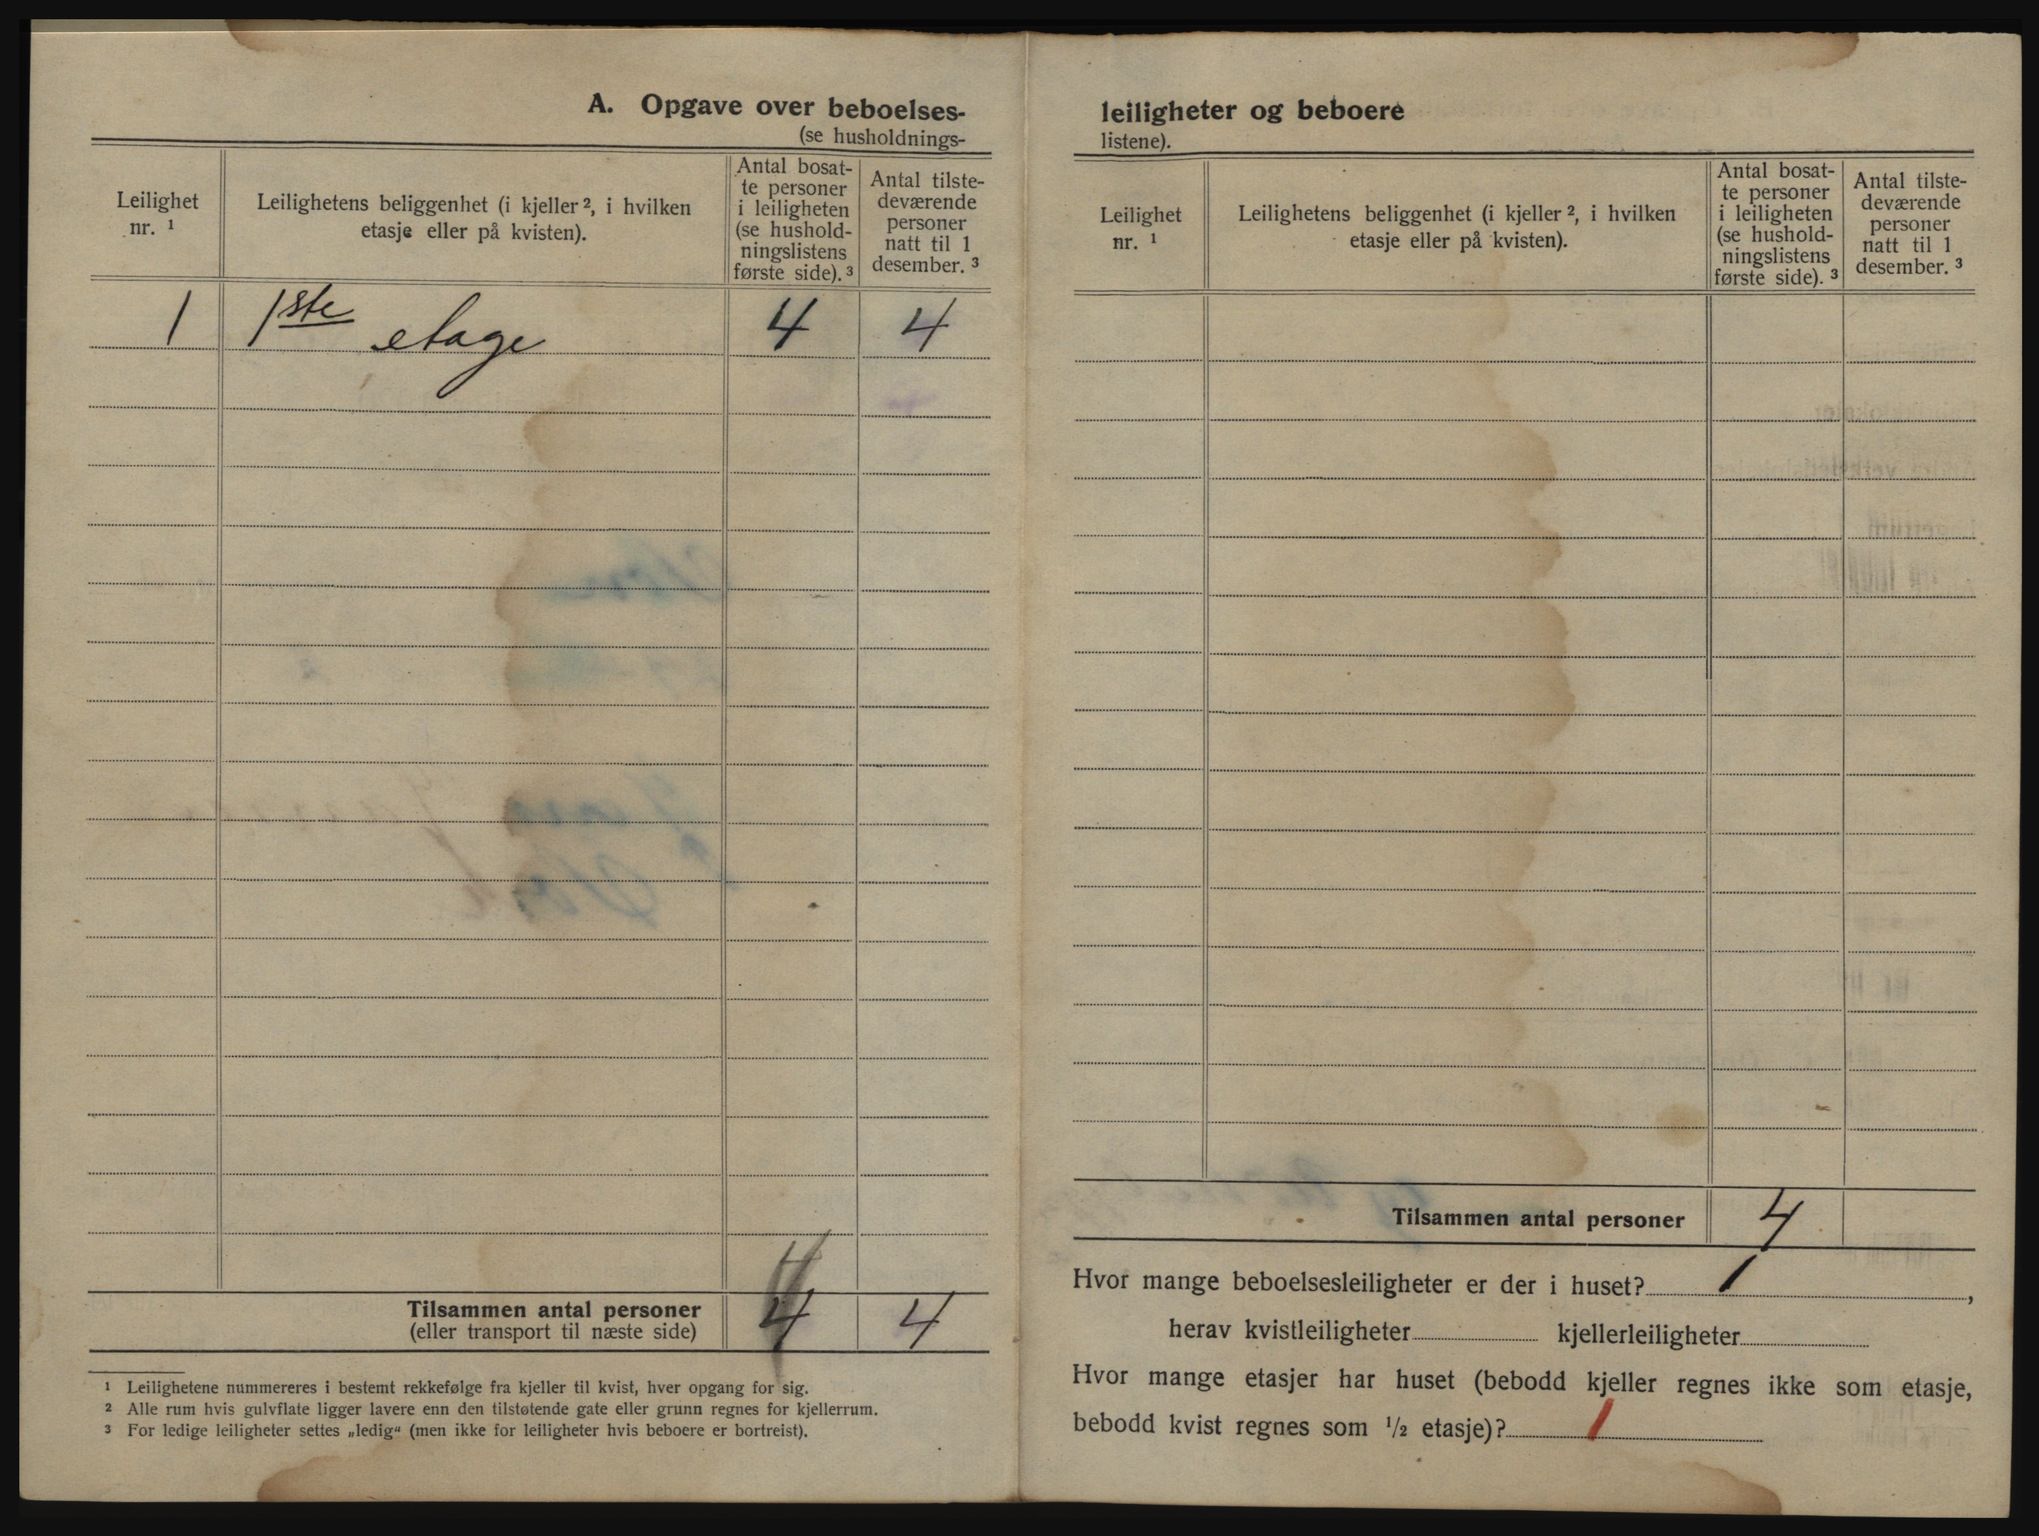 A. Opgave over beboelses-
(se husholdnings-
Leilighet
nr. 1
Leilighetens beliggenhet (i kjeller 2, i hvilken
etasje eller på kvisten).
Antal bosat-
te personer
i leiligheten
(se hushold-
ningslistens
første side). 3
Antal tilste-
deværende
personer
natt til 1
desember. 3
1 1ste etage 4 4
Tilsammen antal personer 4 4
(eller transport til næste side)
1 Leilighetene nummereres i bestemt rekkefølge fra kjeller til kvist, hver opgang for sig.
2 Alle rum hvis gulvflate ligger lavere enn den tilstøtende gate eller grunn regnes for kjellerrum.
3 For ledige leiligheter settes „ledig“ (men ikke for leiligheter hvis beboere er bortreist).
leiligheter og beboere
listene).
Leilighet
nr. 1
Leilighetens beliggenhet (i kjeller 2, i hvilken
etasje eller på kvisten).
Antal bosat-
te personer
i leiligheten
(se hushold-
ningslistens
første side). 3
Antal tilste-
deværende
personer
natt til 1
desember. 3
Tilsammen antal personer 4
Hvor mange beboelsesleiligheter er der i huset? 1,
herav kvistleiligheter kjellerleiligheter
Hvor mange etasjer har huset (bebodd kjeller regnes ikke som etasje,
bebodd kvist regnes som 1/2 etasje)? 1